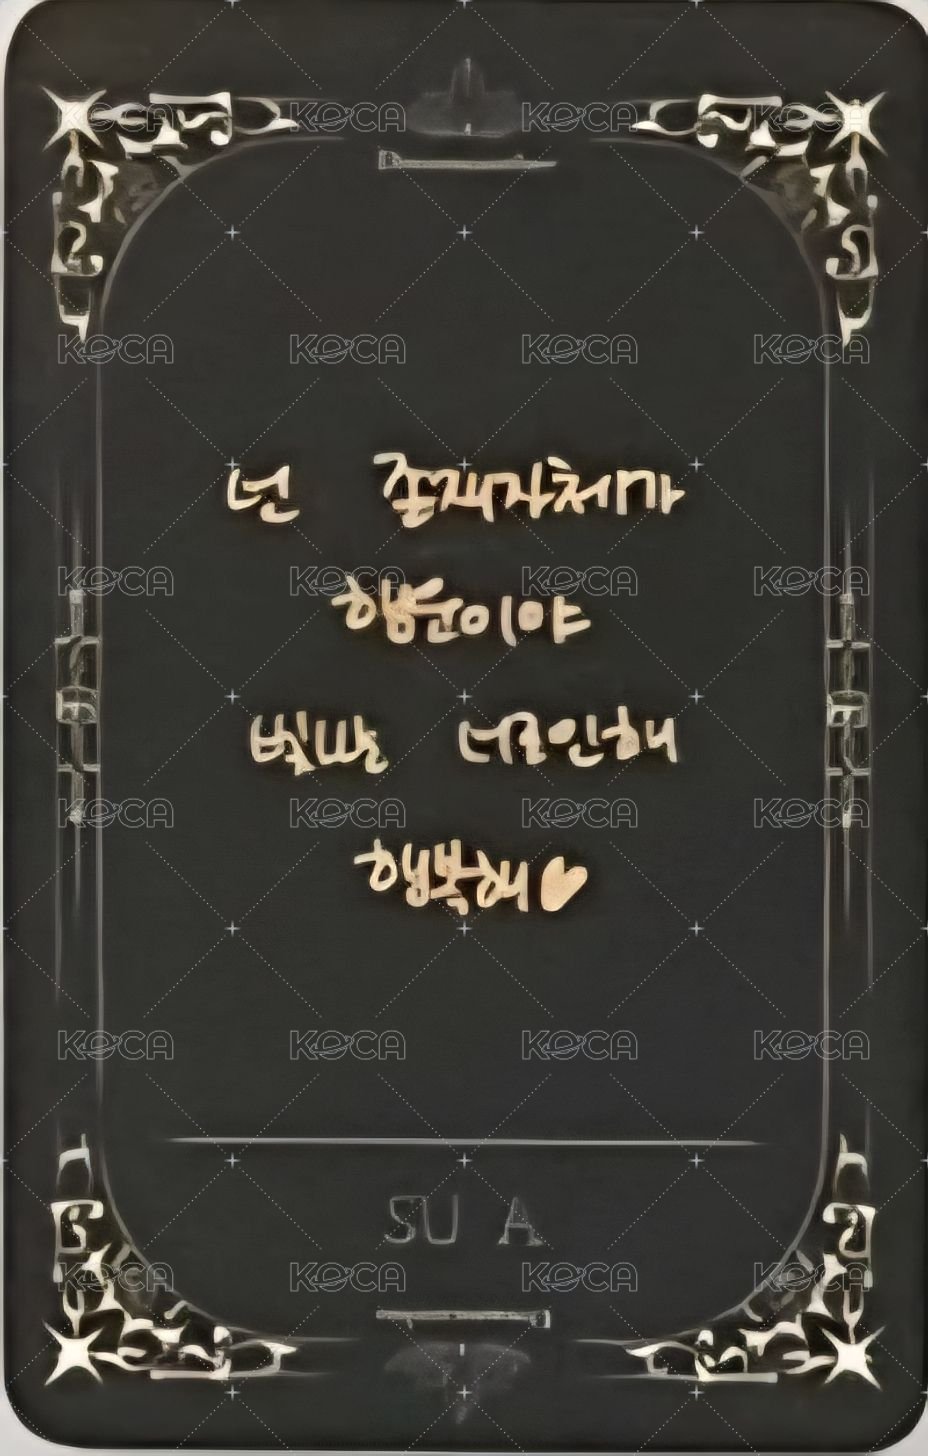 KOCA KOCA KOCA KOCA
KOCA KOCA KOCA KOCA
넌 존재자체가
KOCA KOCA KOCA KOCA
행운이야
너로인해
KOCA KOCA KOCA KOCA
행복해♥
KOCA KOCA KOCA KOCA
SU A
KOCA KOCA KOCA KOCA